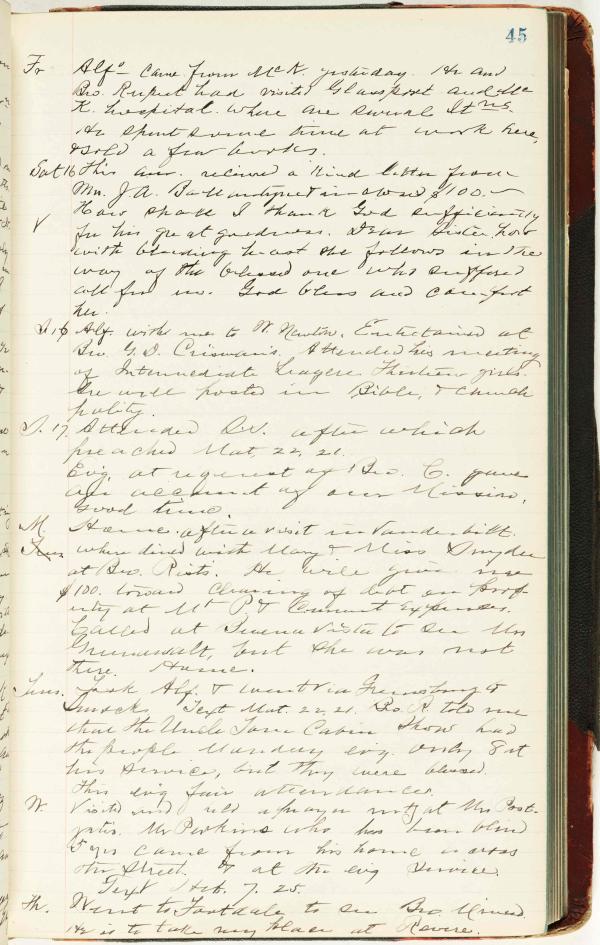 45
Fr Alfo came from McK. yesterday. He and
Bro. Rupert had visited Glassport and Mc
K. hospital where are several It ns.
He spent some time at work here,
& sold a few books.
Sat 16 This am. received a kind letter from
Mrs. J. A. Ballantyne & inclosed $100.—
How shall I thank God sufficiently
V for his great goodness. Dear Sister, how
with bleeding heart she follows in the
way of the blessed one who suffered
all for us. God bless and comfort
her.
S. 16 Alf. with me to W. Newton. Entertained at
Bro. G. D. Criswan's. Attended his meeting
of Intermediate League Thirteen girls.
Are well posted in Bible, & Church
polity.
S. 17. Attended S.S. after which
preached Mat. 22, 21.
Evg. at request of Bro. C. gave
an account of our Mission.
Good time.
M. Home after a visit in Vanderbilt.
Tues where dined with Mary & Miss Snyder
at Bro. Rists. He will give me
$100. toward clearing of debt on prop-
erty at Mt P & Current Expenses.
Called at Buena Vista to see Mrs
Grunawalt, but she was not
there. Home.
Tues. Took Alf. & went via Greensburg to
Smocks. Text Mat. 22, 21. Bro. R. told me
that the Uncle Tom Cabin Show had
the people Monday evg. only 8 at
his service, but they were blessed.
This evg fair attendance.
W. Visited and held a prayer mtg at Mr Post-
Mr Perkins who has been blind
5 yrs came from his home across
the street. & at the evg service.
Text Heb. 7. 25.
Th. Went to Footdale to see Bro.
He is to take my place at Revere.